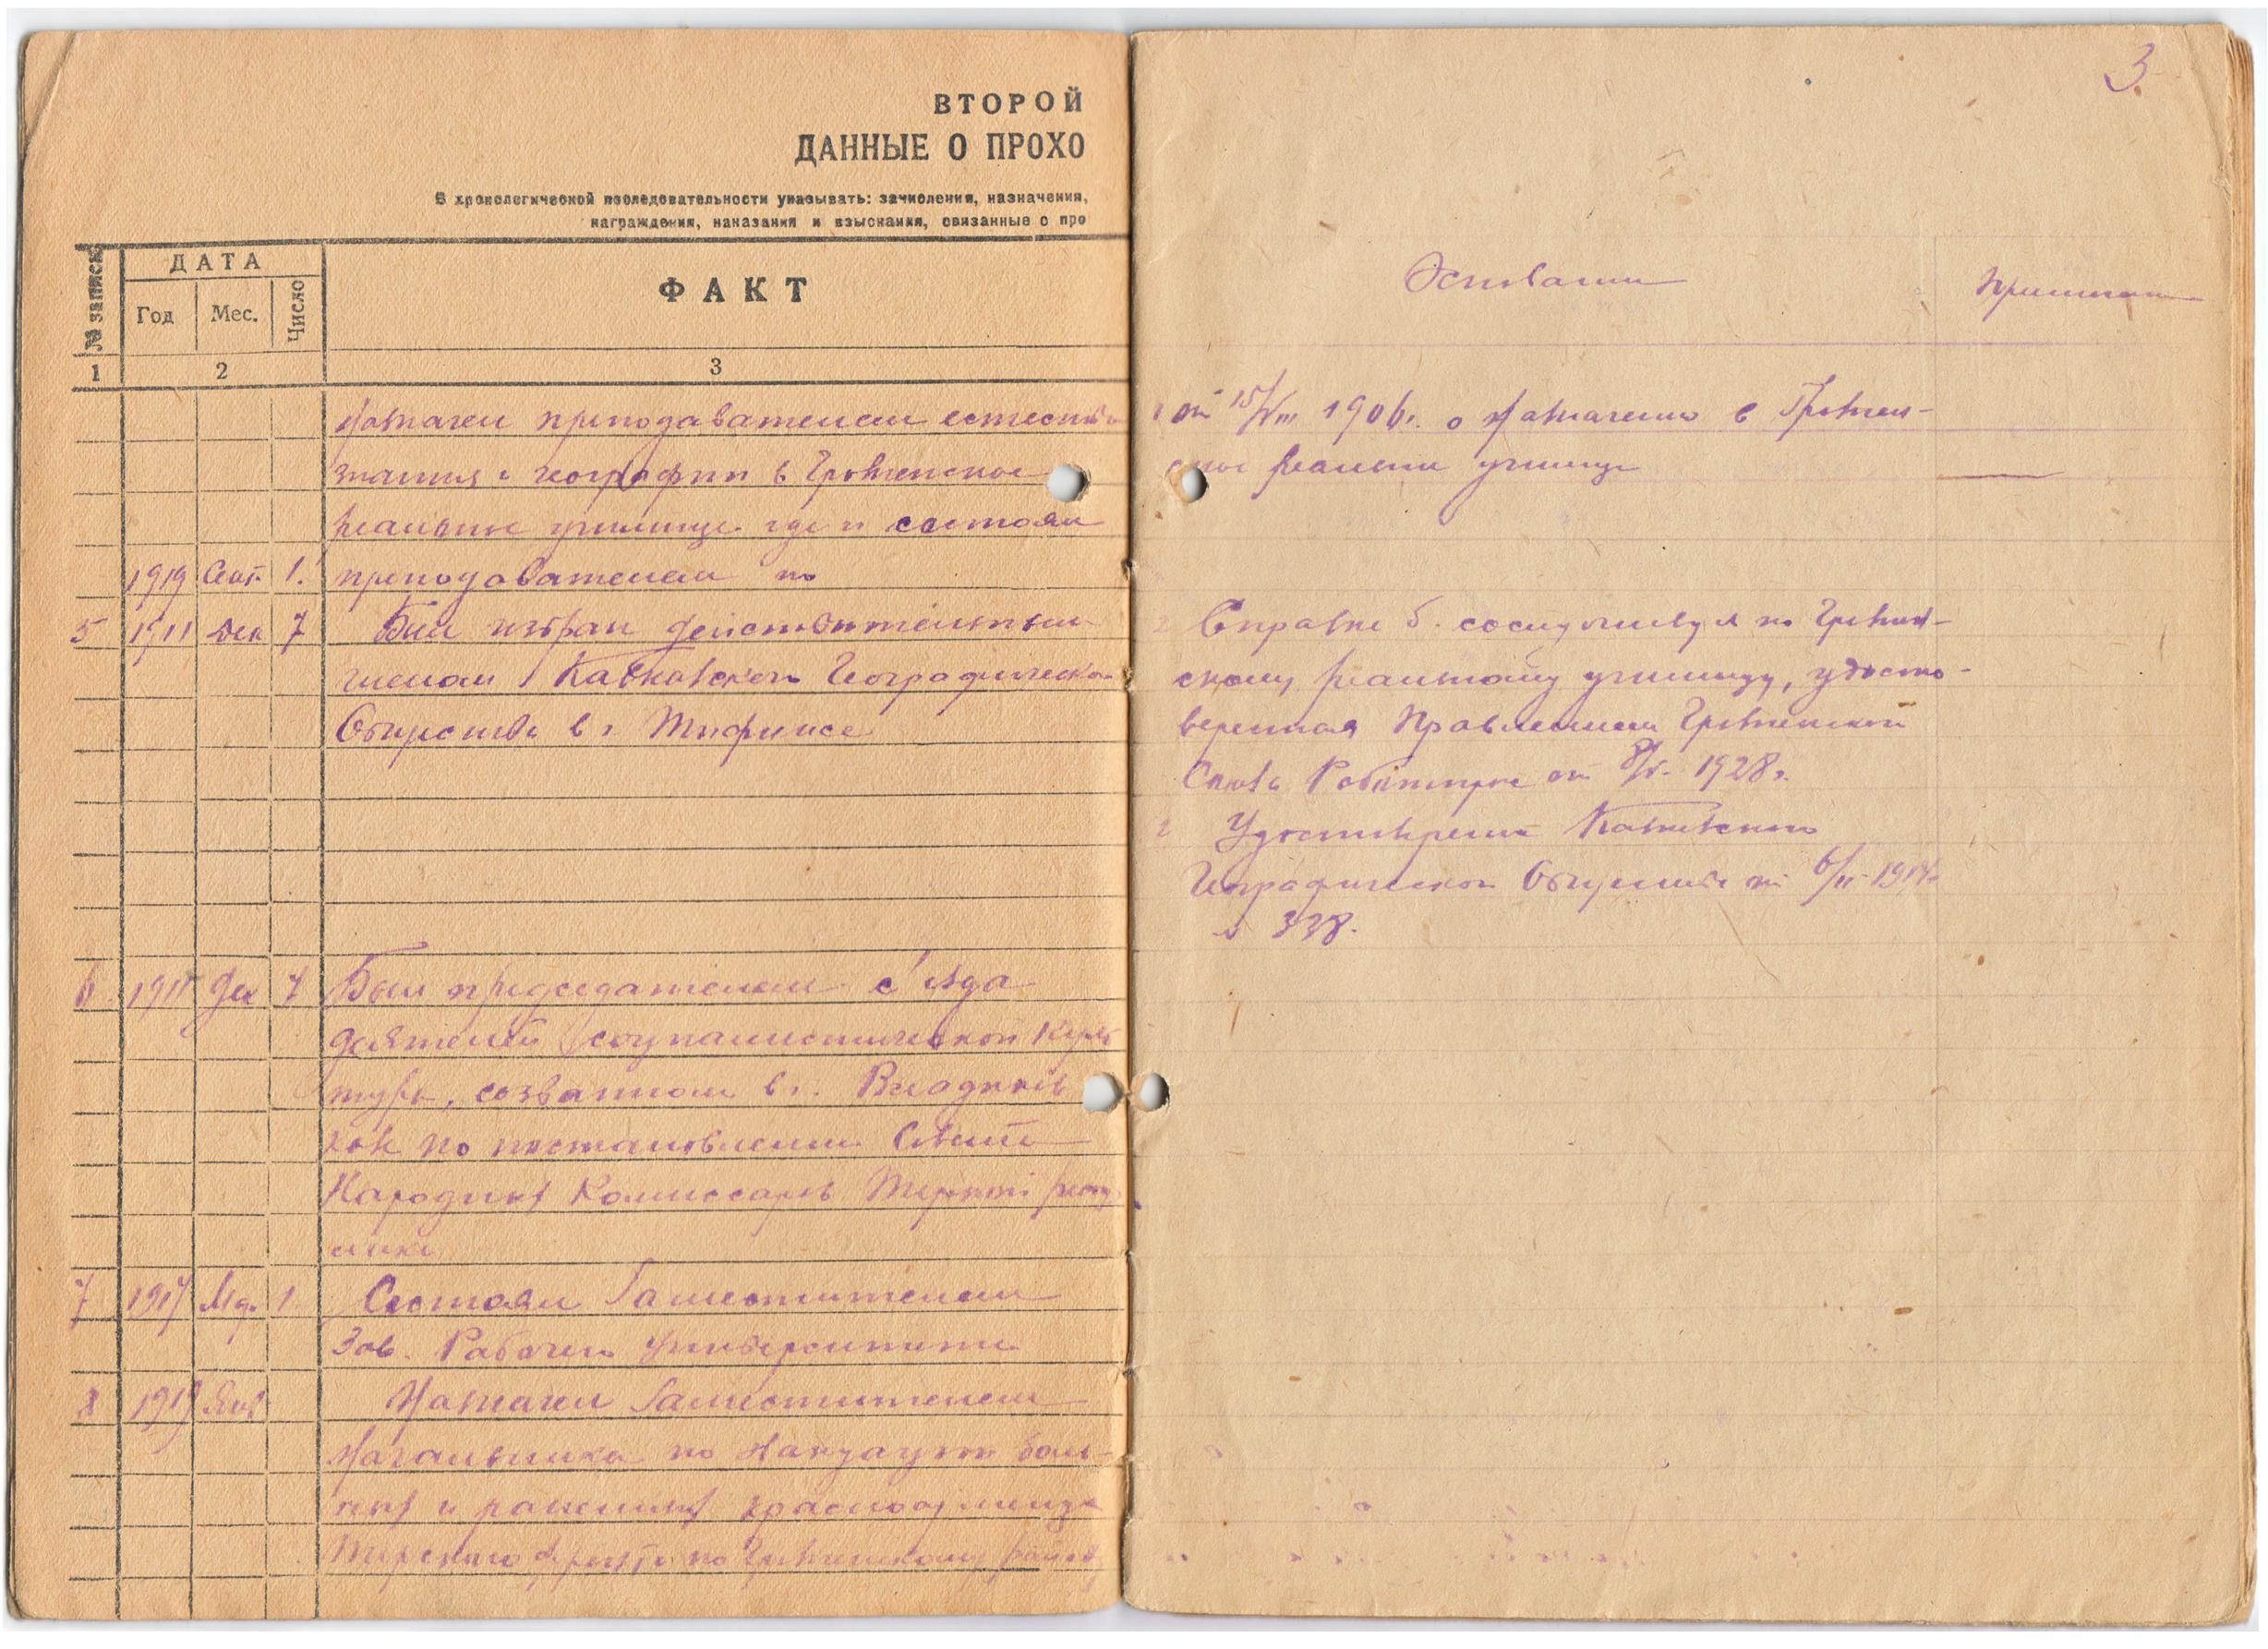 ВТОРОЙ
ДАННЫЕ О ПРОХО
В хронологической последовательности указывать: зачисления, назначения,
награждения, наказания и взыскания, связанные с про
№ записи
ДАТА
Год
Мес.
Число
ФАКТ
1
2
3
Назначен преподавателем естество
знания и географии в Грозненское
реальное училище где и состоял
1919 Сент. 1. преподавателем по
5 1911 Дек 7 Был избран действительным
членом Кавказского Географическо
Общества в г. Тифлисе
6 Дек 7 Был председателем с'езда
деятелей социалистической куль
туры, созванном в г. Владикав
каз по постановлению Совета
Народных Комиссаров Терской респу
блики
7 1917 1. Состоял Заместителем
Зав. Рабочего Университета
8 1919 Янв Назначен Заместителем
Начальника по эвакуации боль-
ных и раненых красноармейцев
Терского фронта по Грозненскому району
3.
Основании
Примечан
от 15/VIII 1906г. о назначении в Грознен-
ское реальное училище
Справка б. сослуживцев по Грознен-
скому реальному училищу, удосто-
веренная Правлением Грозненского
Союза Работпрос от 1928г.
Удостоверение Кавказского
Географического Общества от 6/II 1914г.
№ 338.